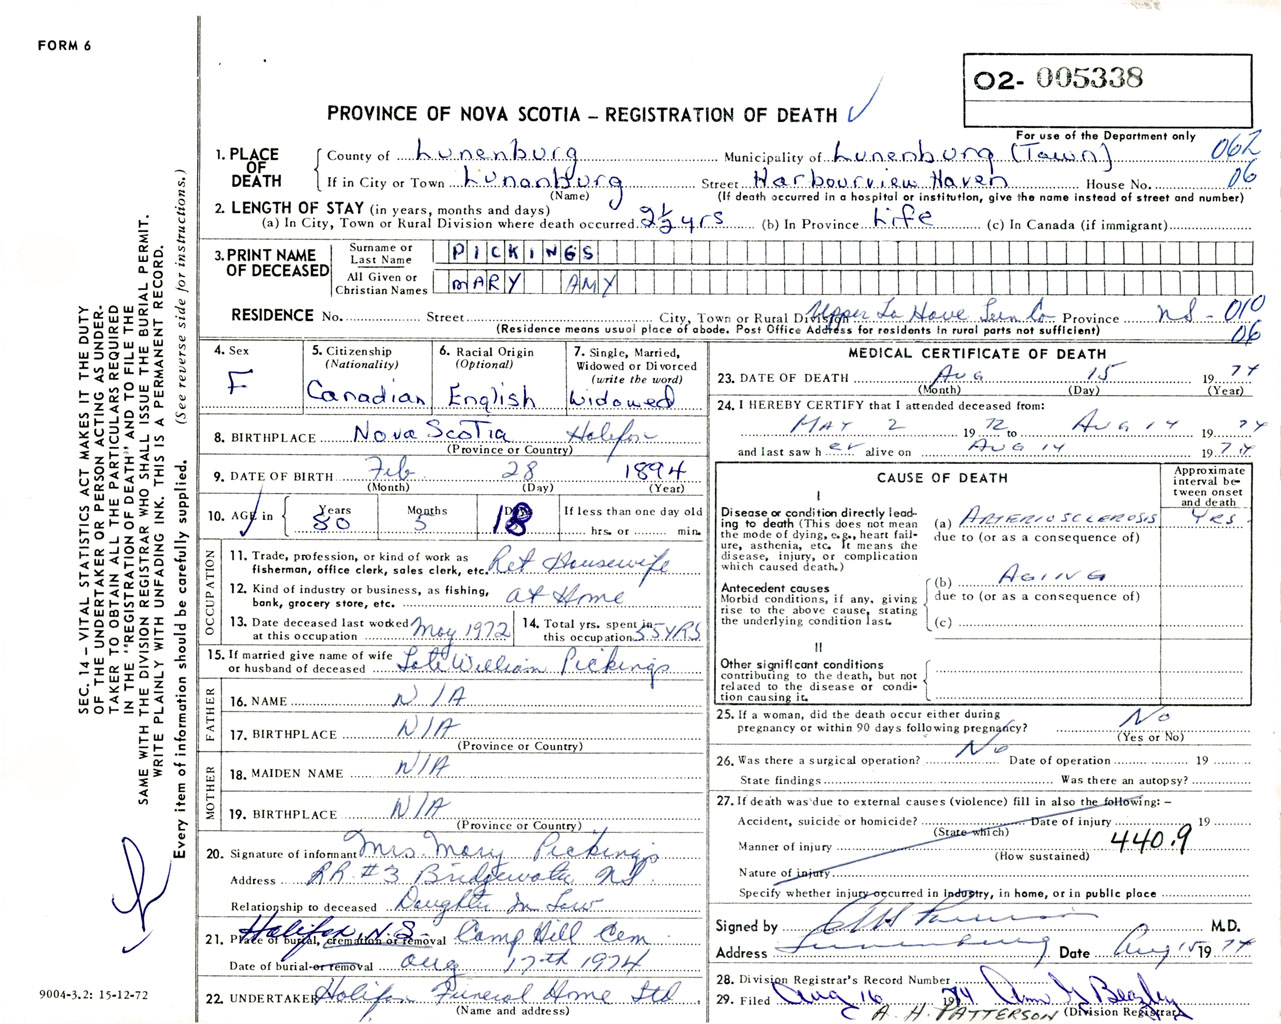 FORM 6
O2- 005338
PROVINCE OF NOVA SCOTIA – REGISTRATION OF DEATH
For use of the Department only
062
06
1. PLACE OF DEATH
County of Lunenburg Municipality of Lunenburg (Town)
If in City or Town Lunenburg Street Harbourview Haven House No.
(Name) (If death occurred in a hospital or institution, give the name instead of street and number)
2. LENGTH OF STAY (in years, months and days)
(a) In City, Town or Rural Division where death occurred 2½ yrs (b) In Province Life (c) In Canada (if immigrant)
3. PRINT NAME OF DECEASED
Surname or Last Name PICKINGS
All Given or Christian Names MARY AMY
RESIDENCE No. Street City, Town or Rural Division Upper La Have Lun Co Province NS - 010
06
(Residence means usual place of abode. Post Office Address for residents in rural parts not sufficient)
4. Sex
F
5. Citizenship
(Nationality)
Canadian
6. Racial Origin
(Optional)
English
7. Single, Married,
Widowed or Divorced
(write the word)
Widowed
8. BIRTHPLACE Nova Scotia Halifax
(Province or Country)
9. DATE OF BIRTH Feb 28 1894
(Month) (Day) (Year)
10. AGE in Years Months Days If less than one day old
80 5 18 hrs. or min.
OCCUPATION
11. Trade, profession, or kind of work as
fisherman, office clerk, sales clerk, etc. Ret Housewife
12. Kind of industry or business, as fishing,
bank, grocery store, etc. at Home
13. Date deceased last worked
at this occupation May 1972
14. Total yrs. spent in
this occupation 55 YRS
15. If married give name of wife
or husband of deceased Late William Pickings
FATHER
16. NAME N/A
17. BIRTHPLACE N/A
(Province or Country)
MOTHER
18. MAIDEN NAME N/A
19. BIRTHPLACE N/A
(Province or Country)
20. Signature of informant Mrs Mary Pickings
Address RR #3 Bridgewater NS.
Relationship to deceased Daughter In Law
21. Place of burial, cremation or removal Halifax, N.S. Camp Hill Cem
Date of burial or removal Aug 17th 1974
22. UNDERTAKER Halifax Funeral Home Ltd
(Name and address)
MEDICAL CERTIFICATE OF DEATH
23. DATE OF DEATH Aug 15 1974
(Month) (Day) (Year)
24. I HEREBY CERTIFY that I attended deceased from:
MAY 2 1972 to AUG 14 1974
and last saw h er alive on AUG 14 1974
CAUSE OF DEATH
Approximate
interval be-
tween onset
and death
I
Disease or condition directly lead-
ing to death (This does not mean
the mode of dying, e.g., heart fail-
ure, asthenia, etc. It means the
disease, injury, or complication
which caused death.)
(a) ARTERIOSCLEROSIS YRS.
due to (or as a consequence of)
Antecedent causes
Morbid conditions, if any, giving
rise to the above cause, stating
the underlying condition last.
(b) AGING
due to (or as a consequence of)
(c)
II
Other significant conditions
contributing to the death, but not
related to the disease or condi-
tion causing it.
25. If a woman, did the death occur either during
pregnancy or within 90 days following pregnancy? No
(Yes or No)
26. Was there a surgical operation? No Date of operation 19
State findings Was there an autopsy?
27. If death was due to external causes (violence) fill in also the following: –
Accident, suicide or homicide? Date of injury 19
(State which)
Manner of injury 440.9
(How sustained)
Nature of injury
Specify whether injury occurred in industry, in home, or in public place
Signed by M.D.
Address Lunenburg Date Aug 15 1974
28. Division Registrar's Record Number
29. Filed Aug 16 1974
A. H. PATTERSON (Division Registrar)
SEC. 14 – VITAL STATISTICS ACT MAKES IT THE DUTY
OF THE UNDERTAKER OR PERSON ACTING AS UNDER-
TAKER TO OBTAIN ALL THE PARTICULARS REQUIRED
IN THE "REGISTRATION OF DEATH" AND TO FILE THE
SAME WITH THE DIVISION REGISTRAR WHO SHALL ISSUE THE BURIAL PERMIT.
WRITE PLAINLY WITH UNFADING INK. THIS IS A PERMANENT RECORD.
Every item of information should be carefully supplied. (See reverse side for instructions.)
9004-3.2: 15-12-72